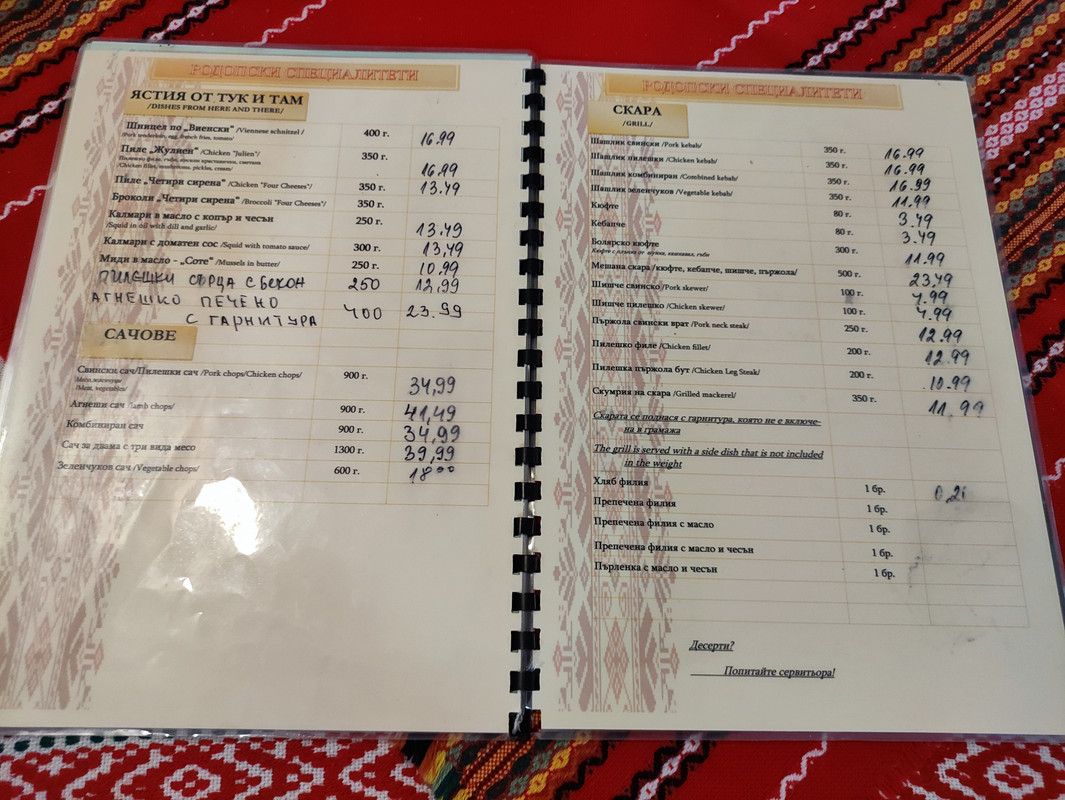 РОДОПСКИ СПЕЦИАЛИТЕТИ
ЯСТИЯ ОТ ТУК И ТАМ
/DISHES FROM HERE AND THERE/
Шницел по „Виенски“ /Viennese schnitzel / 400 г. 16.99
/Pork tenderloin, egg, french fries, tomato/
Пиле „Жулиен“ /Chicken "Julien"/ 350 г. 16,99
Пилешко филе, гъби, кисели краставички, сметана
/Chicken fillet, mushrooms, pickles, cream/
Пиле „Четири сирена“ /Chicken "Four Cheeses"/ 350 г. 13.49
Броколи „Четири сирена“ /Broccoli "Four Cheeses"/ 350 г.
Калмари в масло с копър и чесън 250 г. 13.49
/Squid in oil with dill and garlic/
Калмари с доматен сос /Squid with tomato sauce/ 300 г. 13,49
Миди в масло - „Соте“ /Mussels in butter/ 250 г. 10.99
ПИЛЕШКИ СЪРЦА С БЕКОН 250 12,99
АГНЕШКО ПЕЧЕНО
С ГАРНИТУРА 400 23.99
САЧОВЕ
Свински сач/Пилешки сач /Pork chops/Chicken chops/ 900 г. 34,99
/Месо, зеленчуци
/Meat, vegetables/
Агнешки сач /lamb chops/ 900 г. 41,49
Комбиниран сач 900 г. 34,99
Сач за двама с три вида месо 1300 г. 39,99
Зеленчуков сач /Vegetable chops/ 600 г. 18⁰⁰
РОДОПСКИ СПЕЦИАЛИТЕТИ
СКАРА
/GRILL/
Шашлик свински /Pork kebab/ 350 г. 16.99
Шашлик пилешки /Chicken kebab/ 350 г. 16.99
Шашлик комбиниран /Combined kebab/ 350 г. 16.99
Шашлик зеленчуков /Vegetable kebab/ 350 г. 11,99
Кюфте 80 г. 3.49
Кебапче 80 г. 3.49
Болярско кюфте 300 г. 11.99
Мешана скара /кюфте, кебапче, шишче, пържола/ 500 г. 23,49
Шишче свинско /Pork skewer/ 100 г. 4.99
Шишче пилешко /Chicken skewer/ 100 г. 4.99
Пържола свински врат /Pork neck steak/ 250 г. 12.99
Пилешко филе /Chicken fillet/ 200 г. 12.99
Пилешка пържола бут /Chicken Leg Steak/ 200 г. 10.99
Скумрия на скара /Grilled mackerel/ 350 г. 11,99
Скарата се поднася с гарнитура, която не е включе-
на в грамажа
The grill is served with a side dish that is not included
in the weight
Хляб филия 1 бр. 0,20
Препечена филия 1 бр.
Препечена филия с масло 1 бр.
Препечена филия с масло и чесън 1 бр.
Пърленка с масло и чесън 1 бр.
Десерти?
Попитайте сервитьора!